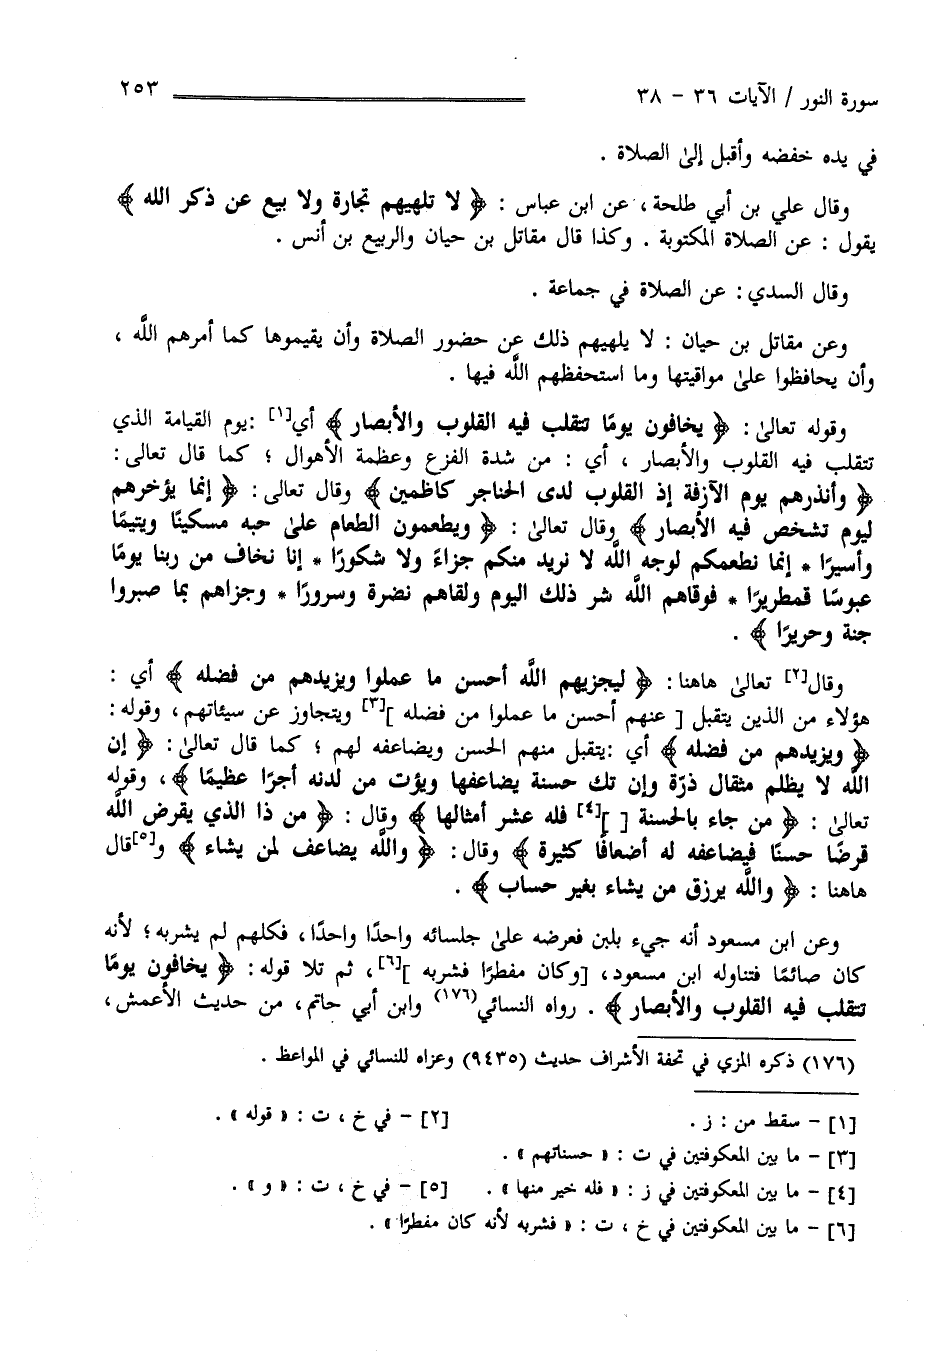 سورة النور / الآيات ٣٦ - ٣٨ ٢٥٣
في يده خفضه وأقبل إلىٰ الصلاة .
وقال علي بن أبي طلحة ، عن ابن عباس : ﴿ لا تلهيهم تجارة ولا بيع عن ذكر الله ﴾
يقول : عن الصلاة المكتوبة . وكذا قال مقاتل بن حيان والربيع بن أنس .
وقال السدي : عن الصلاة في جماعة .
وعن مقاتل بن حيان : لا يلهيهم ذلك عن حضور الصلاة وأن يقيموها كما أمرهم اللَّه ،
وأن يحافظوا علىٰ مواقيتها وما استحفظهم اللَّه فيها .
وقوله تعالىٰ : ﴿ يخافون يومًا تتقلب فيه القلوب والأبصار ﴾ أي[١] :يوم القيامة الذي
تتقلب فيه القلوب والأبصار ، أي : من شدة الفزع وعظمة الأهوال ؛ كما قال تعالى :
﴿ وأنذرهم يوم الآزفة إذ القلوب لدى الحناجر كاظمين ﴾ وقال تعالى : ﴿ إنما يؤخرهم
ليوم تشخص فيه الأبصار ﴾ وقال تعالىٰ : ﴿ ويطعمون الطعام علىٰ حبه مسكينًا ويتيمًا
وأسيرًا * إنما نطعمكم لوجه اللَّه لا نريد منكم جزاءً ولا شكورًا * إنا نخاف من ربنا يومًا
عبوسًا قمطريرًا * فوقاهم اللَّه شر ذلك اليوم ولقاهم نضرة وسرورًا * وجزاهم بما صبروا
جنة وحريرًا ﴾ .
وقال[٢] تعالىٰ هاهنا : ﴿ ليجزيهم اللَّه أحسن ما عملوا ويزيدهم من فضله ﴾ أي :
هؤلاء من الذين يتقبل [ عنهم أحسن ما عملوا من فضله ][٣] ويتجاوز عن سيئاتهم ، وقوله :
﴿ ويزيدهم من فضله ﴾ أي :يتقبل منهم الحسن ويضاعفه لهم ؛ كما قال تعالىٰ : ﴿ إن
اللَّه لا يظلم مثقال ذرّة وإن تك حسنة يضاعفها ويؤت من لدنه أجرًا عظيمًا ﴾ ، وقوله
تعالىٰ : ﴿ من جاء بالحسنة [ ][٤] فله عشر أمثالها ﴾ وقال : ﴿ من ذا الذي يقرض اللَّه
قرضًا حسنًا فيضاعفه له أضعافًا كثيرة ﴾ وقال : ﴿ واللَّه يضاعف لمن يشاء ﴾ و[٥]قال
هاهنا : ﴿ واللَّه يرزق من يشاء بغير حساب ﴾ .
وعن ابن مسعود أنه جيء بلبن فعرضه علىٰ جلسائه واحدًا واحدًا ، فكلهم لم يشربه ؛ لأنه
كان صائمًا فتناوله ابن مسعود ، [وكان مفطرًا فشربه ][٦] ، ثم تلا قوله : ﴿ يخافون يومًا
تتقلب فيه القلوب والأبصار ﴾ . رواه النسائي(١٧٦) وابن أبي حاتم ، من حديث الأعمش ،
(١٧٦) ذكره المزي في تحفة الأشراف حديث (٩٤٣٥) وعزاه للنسائي في المواعظ .
[١] - سقط من : ز . [٢] - في خ ، ت : « قوله » .
[٣] - ما بين المعكوفتين في ت : « حسناتهم » .
[٤] - ما بين المعكوفتين في ز : « فله خير منها » . [٥] - في خ ، ت : « و » .
[٦] - ما بين المعكوفتين في خ ، ت : « فشربه لأنه كان مفطرًا » .